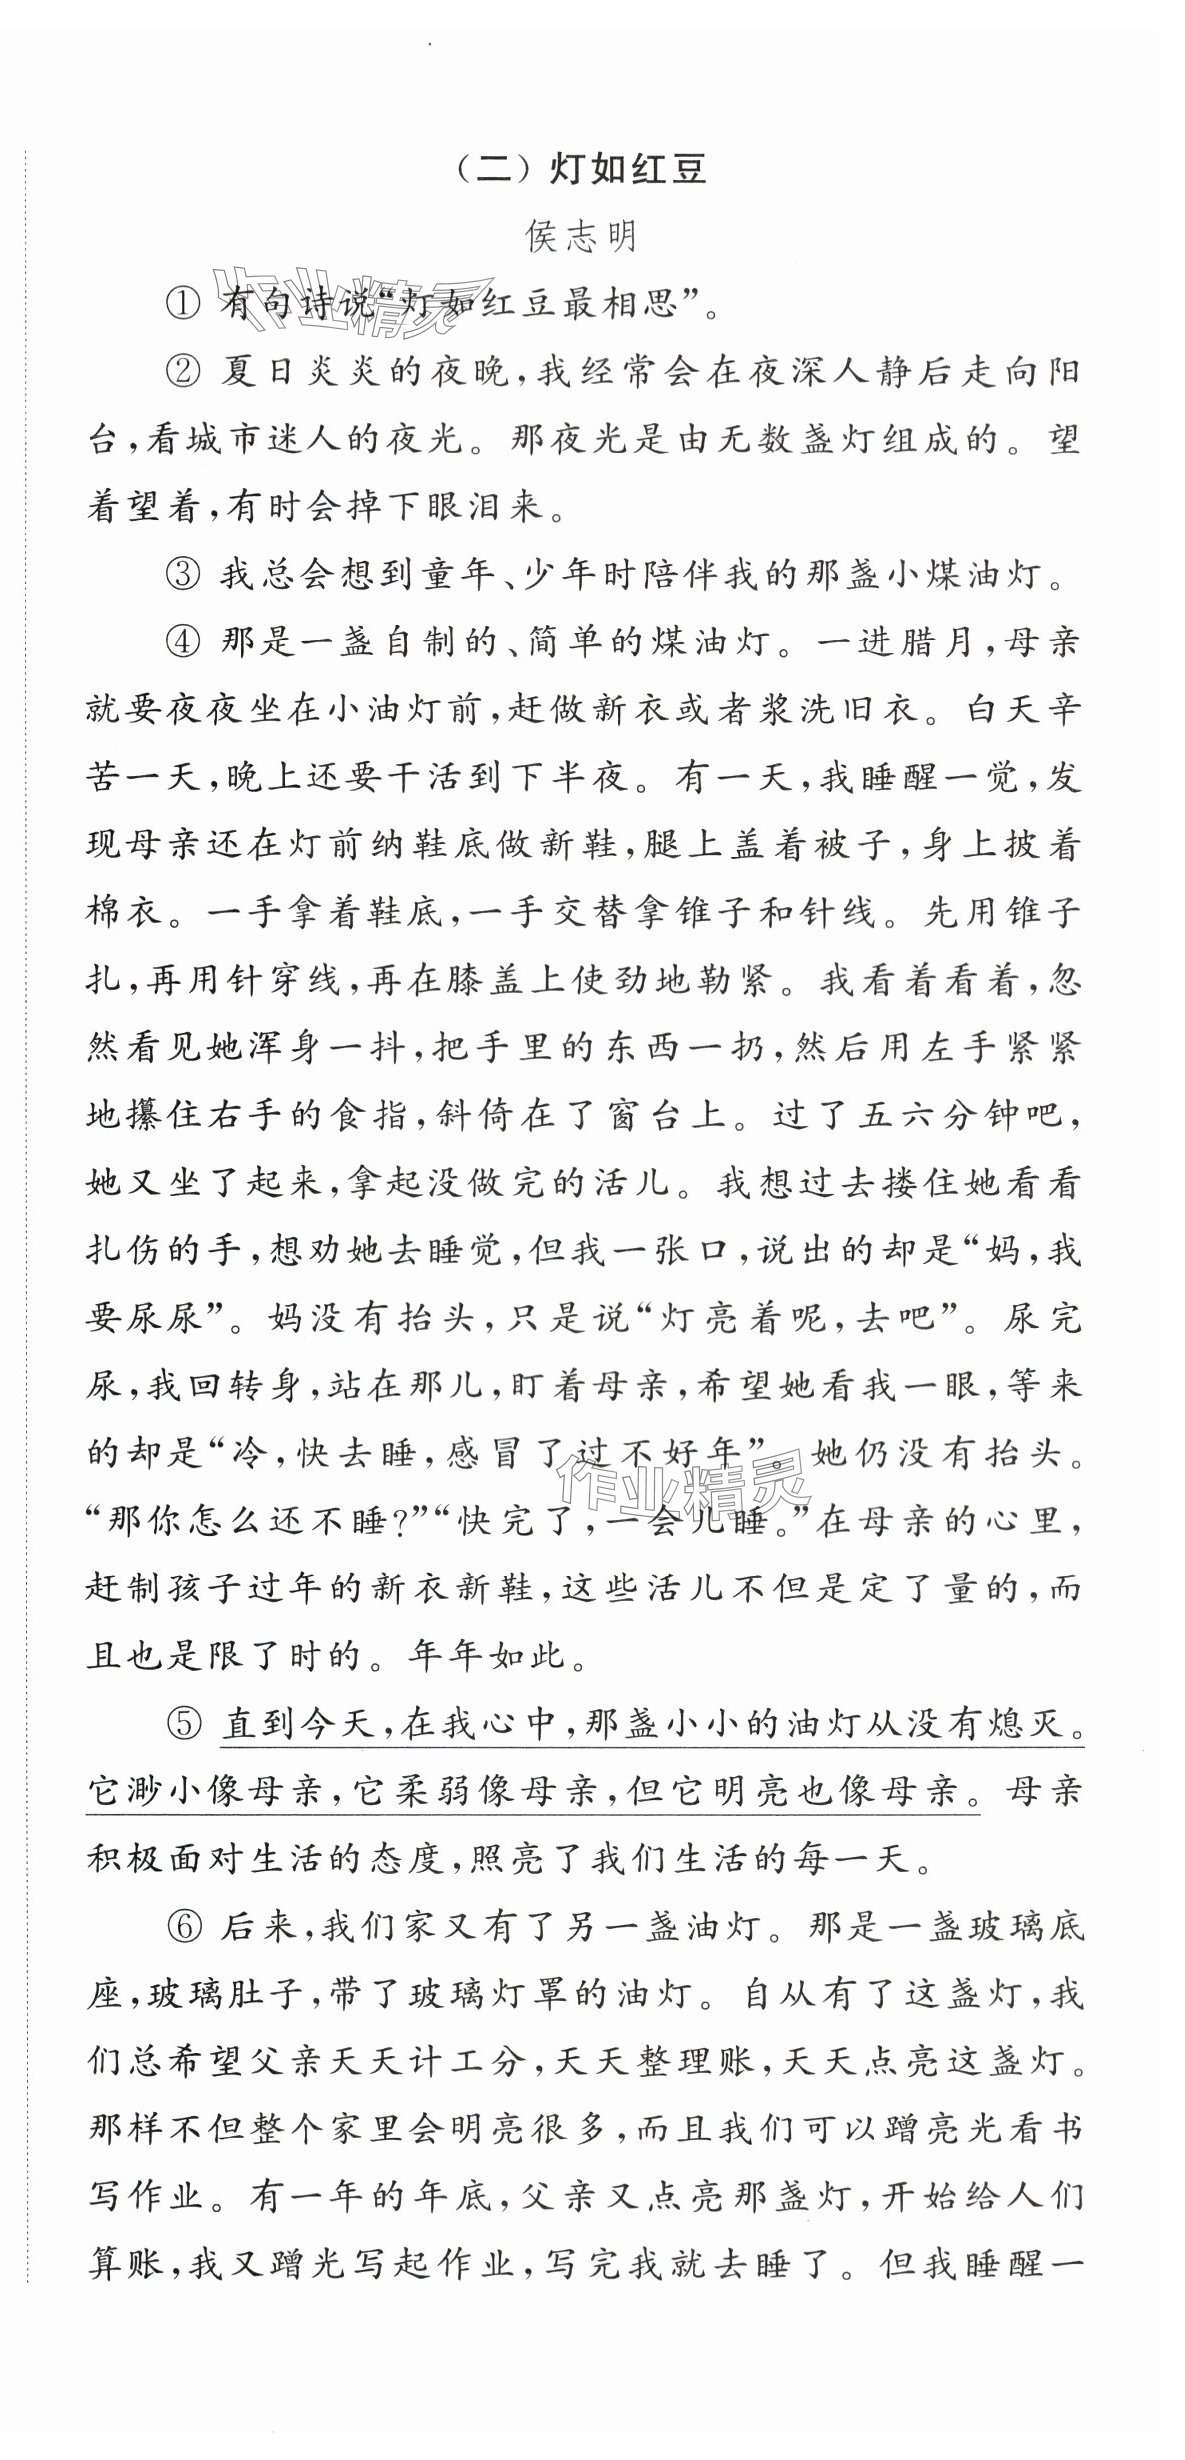 （二）灯如红豆
侯志明
① 有句诗说“灯如红豆最相思”。
② 夏日炎炎的夜晚，我经常会在夜深人静后走向阳
台，看城市迷人的夜光。那夜光是由无数盏灯组成的。望
着望着，有时会掉下眼泪来。
③ 我总会想到童年、少年时陪伴我的那盏小煤油灯。
④ 那是一盏自制的、简单的煤油灯。一进腊月，母亲
就要夜夜坐在小油灯前，赶做新衣或者浆洗旧衣。白天辛
苦一天，晚上还要干活到下半夜。有一天，我睡醒一觉，发
现母亲还在灯前纳鞋底做新鞋，腿上盖着被子，身上披着
棉衣。一手拿着鞋底，一手交替拿锥子和针线。先用锥子
扎，再用针穿线，再在膝盖上使劲地勒紧。我看着看着，忽
然看见她浑身一抖，把手里的东西一扔，然后用左手紧紧
地攥住右手的食指，斜倚在了窗台上。过了五六分钟吧，
她又坐了起来，拿起没做完的活儿。我想过去搂住她看看
扎伤的手，想劝她去睡觉，但我一张口，说出的却是“妈，我
要尿尿”。妈没有抬头，只是说“灯亮着呢，去吧”。尿完
尿，我回转身，站在那儿，盯着母亲，希望她看我一眼，等来
的却是“冷，快去睡，感冒了过不好年”。她仍没有抬头。
“那你怎么还不睡？”“快完了，一会儿睡。”在母亲的心里，
赶制孩子过年的新衣新鞋，这些活儿不但是定了量的，而
且也是限了时的。年年如此。
⑤ 直到今天，在我心中，那盏小小的油灯从没有熄灭。
它渺小像母亲，它柔弱像母亲，但它明亮也像母亲。母亲
积极面对生活的态度，照亮了我们生活的每一天。
⑥ 后来，我们家又有了另一盏油灯。那是一盏玻璃底
座，玻璃肚子，带了玻璃灯罩的油灯。自从有了这盏灯，我
们总希望父亲天天计工分，天天整理账，天天点亮这盏灯。
那样不但整个家里会明亮很多，而且我们可以蹭亮光看书
写作业。有一年的年底，父亲又点亮那盏灯，开始给人们
算账，我又蹭光写起作业，写完我就去睡了。但我睡醒一
作业精灵
作业精灵